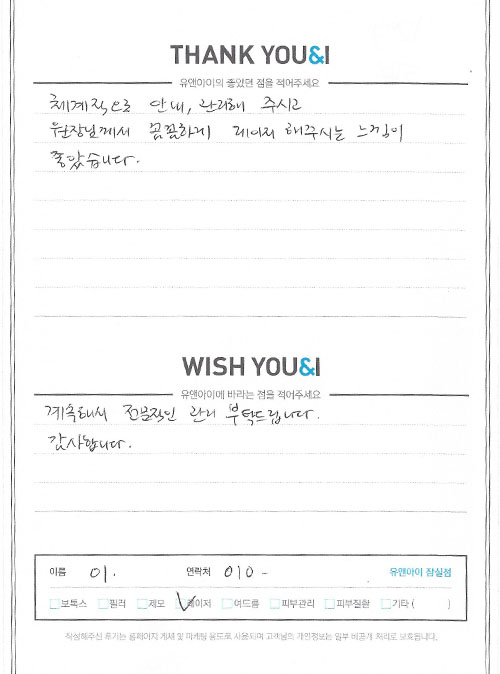 THANK YOU&I
유앤아이의 좋았던 점을 적어주세요
체계적으로 안내, 관리해 주시고
원장님께서 꼼꼼하게 레이저 해주시는 느낌이
좋았습니다.
WISH YOU&I
유앤아이에 바라는 점을 적어주세요
계속해서 전문적인 관리 부탁드립니다.
감사합니다.
이름 이. 연락처 010 - 유앤아이 잠실점
보톡스 필러 제모 레이저 여드름 피부관리 피부질환 기타 ( )
작성해주신 후기는 홈페이지 게재 및 마케팅 용도로 사용되며 고객님의 개인정보는 일부 비공개 처리로 보호됩니다.